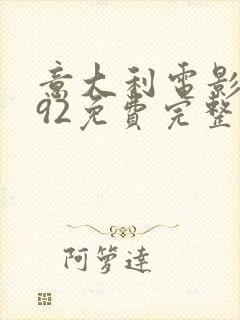 意大利電影
92免費完整
阿箩達